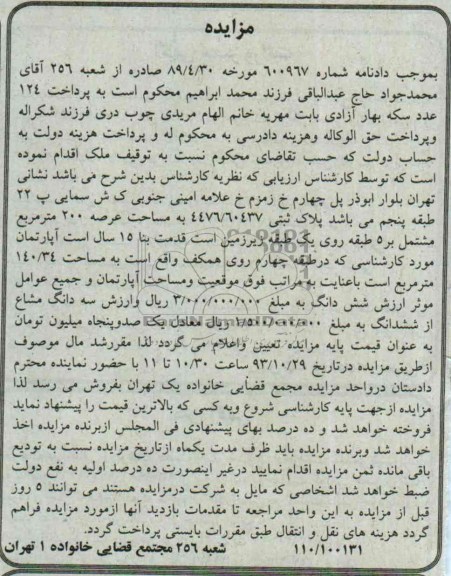 مزایده
بموجب دادنامه شماره ۶۰۰۹۶۷ مورخه ۸۹/۴/۳۰ صادره از شعبه ۲۵۶ آقای
محمدجواد حاج عبدالباقی فرزند محمد ابراهیم محکوم است به پرداخت ۱۲۴
عدد سکه بهار آزادی بابت مهریه خانم الهام مریدی چوب دری فرزند شکراله
وپرداخت حق الوکاله وهزینه دادرسی به محکوم له و پرداخت هزینه دولت به
حساب دولت که حسب تقاضای محکوم نسبت به توقیف ملک اقدام نموده
است که توسط کارشناس ارزیابی که نظریه کارشناس بدین شرح می باشد نشانی
تهران بلوار ابوذر پل چهارم خ زمزم خ علامه امینی جنوبی ک ش سمایی پ ۲۲
طبقه پنجم می باشد پلاک ثبتی ۴۴۷۶/۶۰۴۳۷ به مساحت عرصه ۲۰۰ مترمربع
مشتمل بر۵ طبقه روی یک طبقه زیرزمین است قدمت بنا ۱۵ سال است آپارتمان
مورد کارشناسی که درطبقه چهارم روی همکف واقع است به مساحت ۱۴۰/۳۴
مترمربع است باعنایت به مراتب فوق موقعیت ومساحت آپارتمان و جمیع عوامل
موثر ارزش شش دانگ به مبلغ ۳/۰۰۰/۰۰۰/۰۰۰ ریال وارزش سه دانگ مشاع
از ششدانگ به مبلغ ۱/۵۰۰/۰۰۰/۰۰۰ ریال معادل یک صدوپنجاه میلیون تومان
به عنوان قیمت پایه مزایده تعیین واعلام می گردد لذا مقررشد مال موصوف
ازطریق مزایده درتاریخ ۹۳/۱۰/۲۹ ساعت ۱۰/۳۰ تا ۱۱ با حضور نماینده محترم
دادستان درواحد مزایده مجمع قضایی خانواده یک تهران بفروش می رسد لذا
مزایده ازجهت پایه کارشناسی شروع وبه کسی که بالاترین قیمت را پیشنهاد نماید
فروخته خواهد شد و ده درصد بهای پیشنهادی فی المجلس ازبرنده مزایده اخذ
خواهد شد وبرنده مزایده باید ظرف مدت یکماه ازتاریخ مزایده نسبت به تودیع
باقی مانده ثمن مزایده اقدام نمایید درغیر اینصورت ده درصد اولیه به نفع دولت
ضبط خواهد شد اشخاصی که مایل به شرکت درمزایده هستند می توانند ۵ روز
قبل از مزایده به این واحد مراجعه تا مقدمات بازدید آنها ازمورد مزایده فراهم
گردد هزینه های نقل و انتقال طبق مقررات بایستی پرداخت گردد.
۱۱۰/۱۰۰۱۳۱ شعبه ۲۵۶ مجتمع قضایی خانواده ۱ تهران